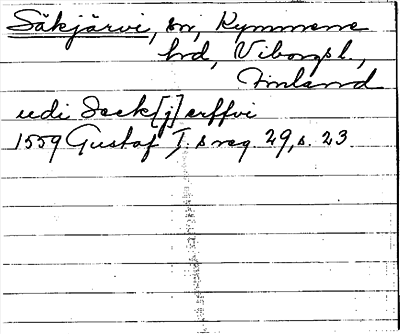 Säkjärvi, sn, Kymmene
hd, Viborgs l.,
Finland
udi Seck[j]erffvi
1559 Gustaf I:s reg. 29, s. 23.